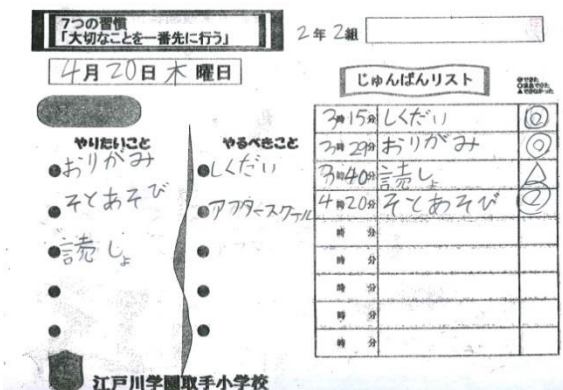 7つの習慣
「大切なことを一番先に行う」
2年2組
4月20日木曜日
やりたいこと
おりがみ
そとあそび
読しょ
やるべきこと
しくだい
アフタースクール
じゅんばんリスト
◎できた
▲できなかった
3時15分 しくだい ◎
3時29分 おりがみ ◎
3時40分 読しょ △
4時20分 そとあそび
時 分
時 分
時 分
時 分
江戸川学園取手小学校